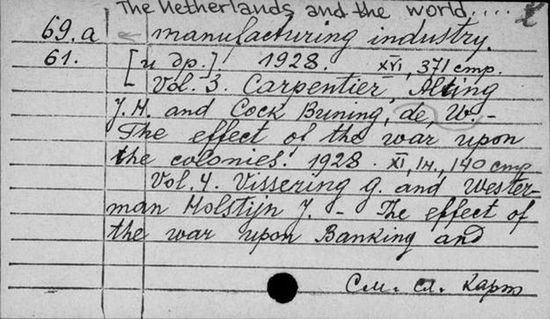 The Netherlands and the world....
69.a manufacturing industry.
61. [и др.] 1928. XVI, 371 стр.
Vol. 3. Carpentier Alting
J. H. and Cock Buning, de, W. -
The effect of the war upon
the colonies. 1928. XI, 1н., 140 стр.
Vol. 4. Vissering G. and Wester-
man Holstijn J. - The effect of
the war upon Banking and
См. сл. карт